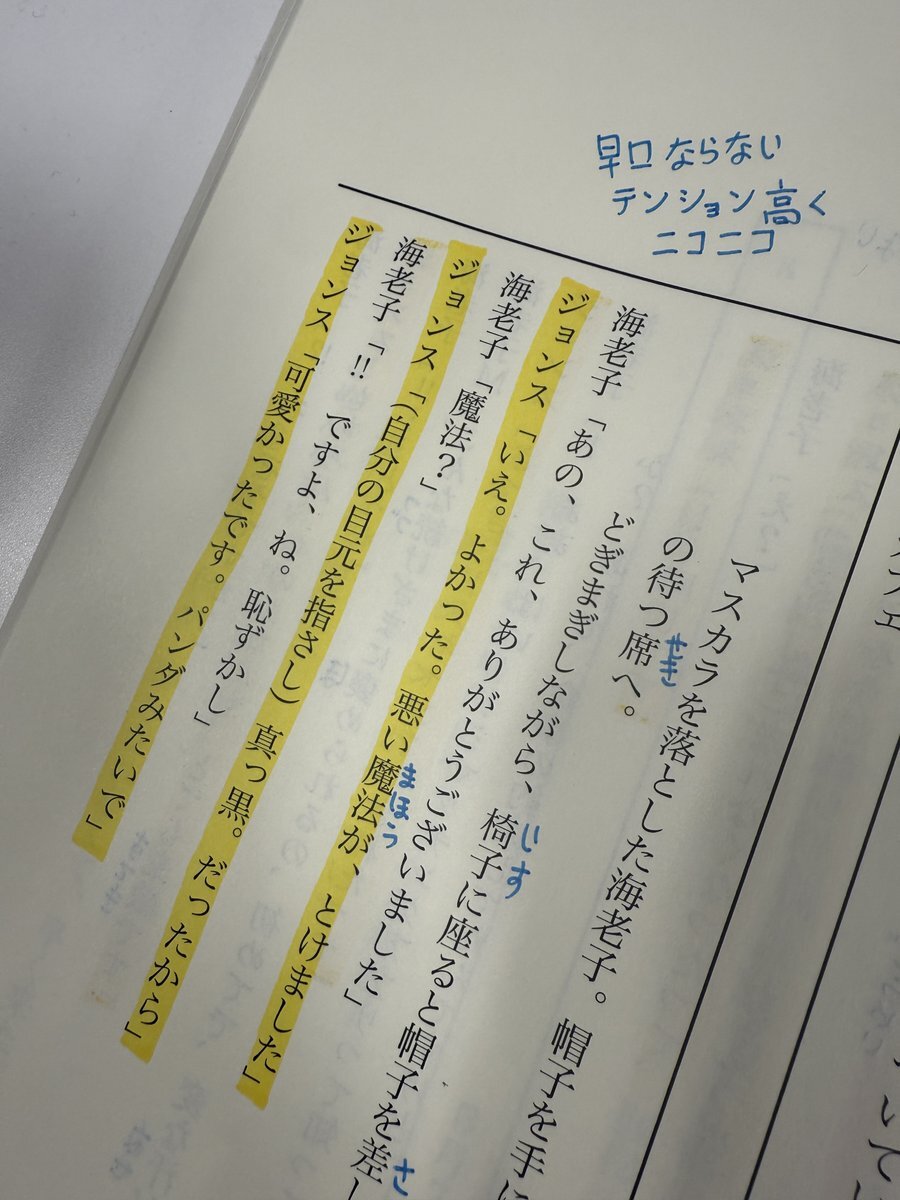 早口ならない
テンション高く
ニコニコ
マスカラを落とした海老子。帽子を手に
の待つ席へ。
せき
どぎまぎしながら、椅子に座ると帽子を差し
いす
さ
海老子「あの、これ、ありがとうございました」
ジョンス「いえ。よかった。悪い魔法が、とけました」
まほう
海老子「魔法？」
ジョンス「（自分の目元を指さし）真っ黒。だったから」
海老子「!!　ですよ、ね。恥ずかし」
ジョンス「可愛かったです。パンダみたいで」